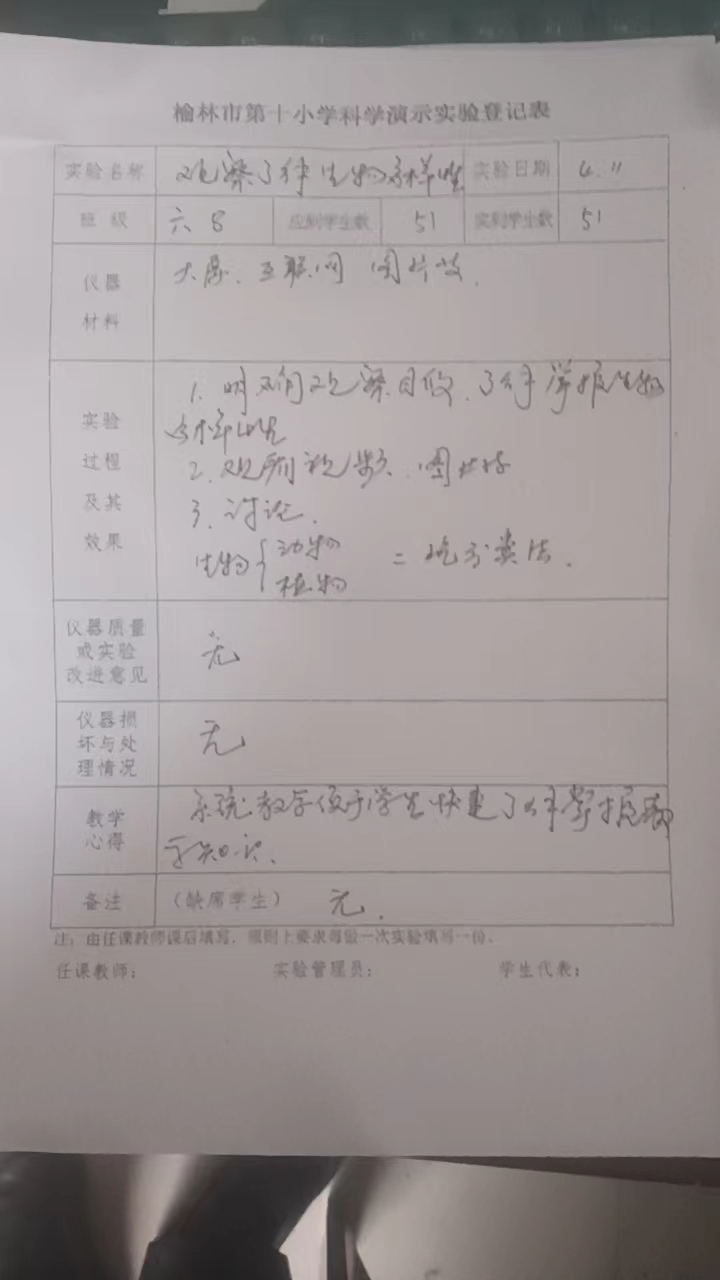 榆林市第十小学科学演示实验登记表
实验名称 观察了解生物多样性 实验日期 4.11
班级 六8 应到学生数 51 实到学生数 51
仪器材料 大屏、互联网 图片
实验过程及其效果
1. 明确观察目的、了解掌握生物
多样性
2. 观看视频、图片
3. 讨论.
生物{动物 植物 = 分类法.
仪器质量或实验改进意见 无
仪器损坏与处理情况 无
教学心得 系统教学便于学生快速了解掌握
知识.
备注 (缺席学生) 无.
注：由任课教师课后填写，原则上要求每做一次实验填写一份。
任课教师： 实验管理员： 学生代表：